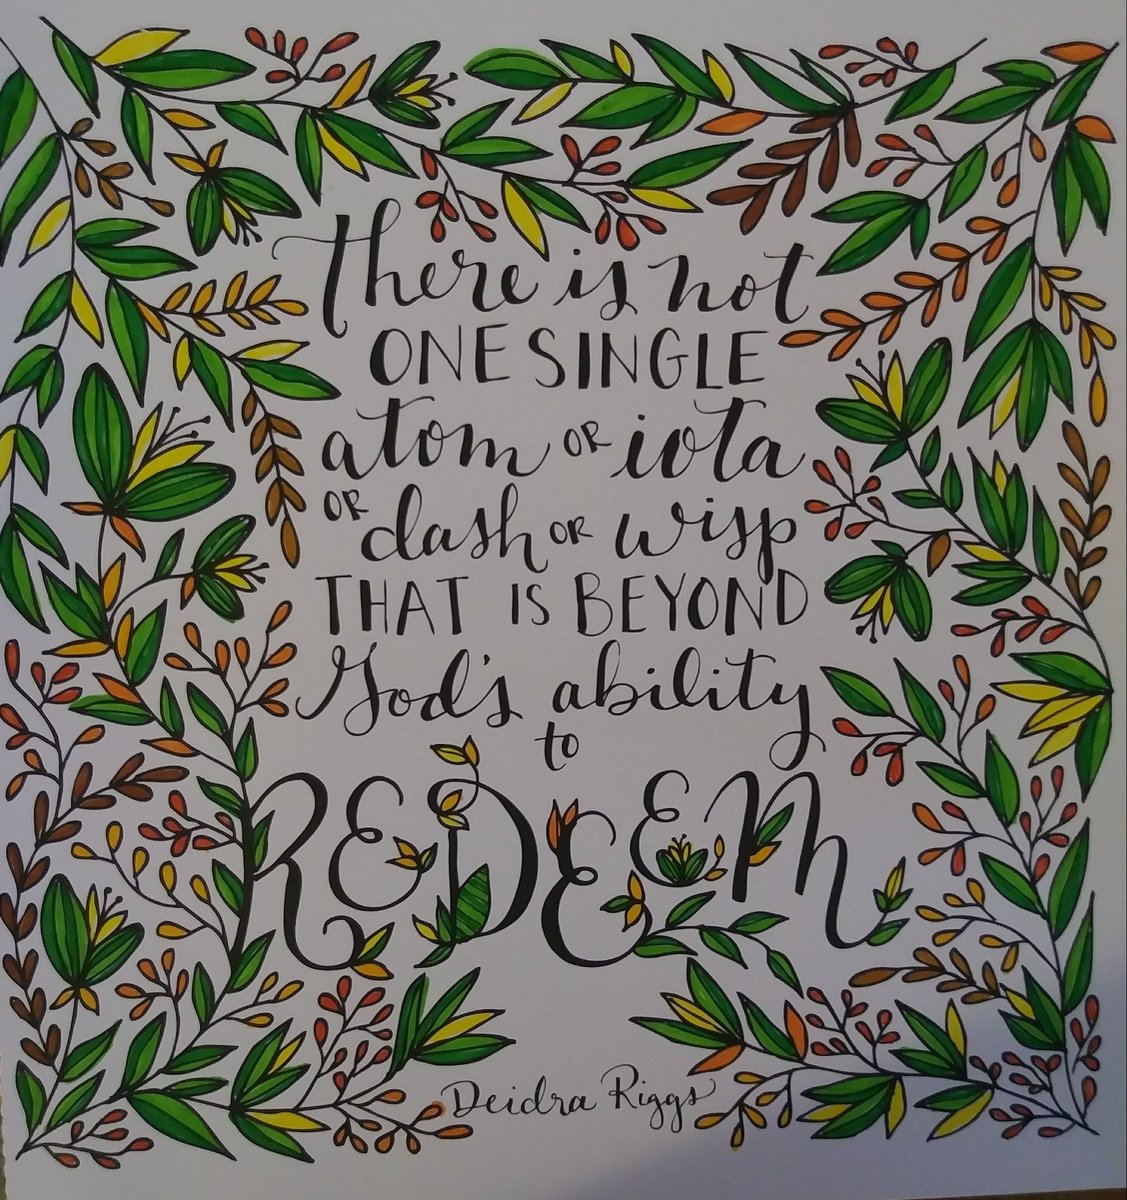 There is not
ONE SINGLE
atom OR iota
OR dash OR wisp
THAT IS BEYOND
God's ability
to
REDEEM
Deidra Riggs